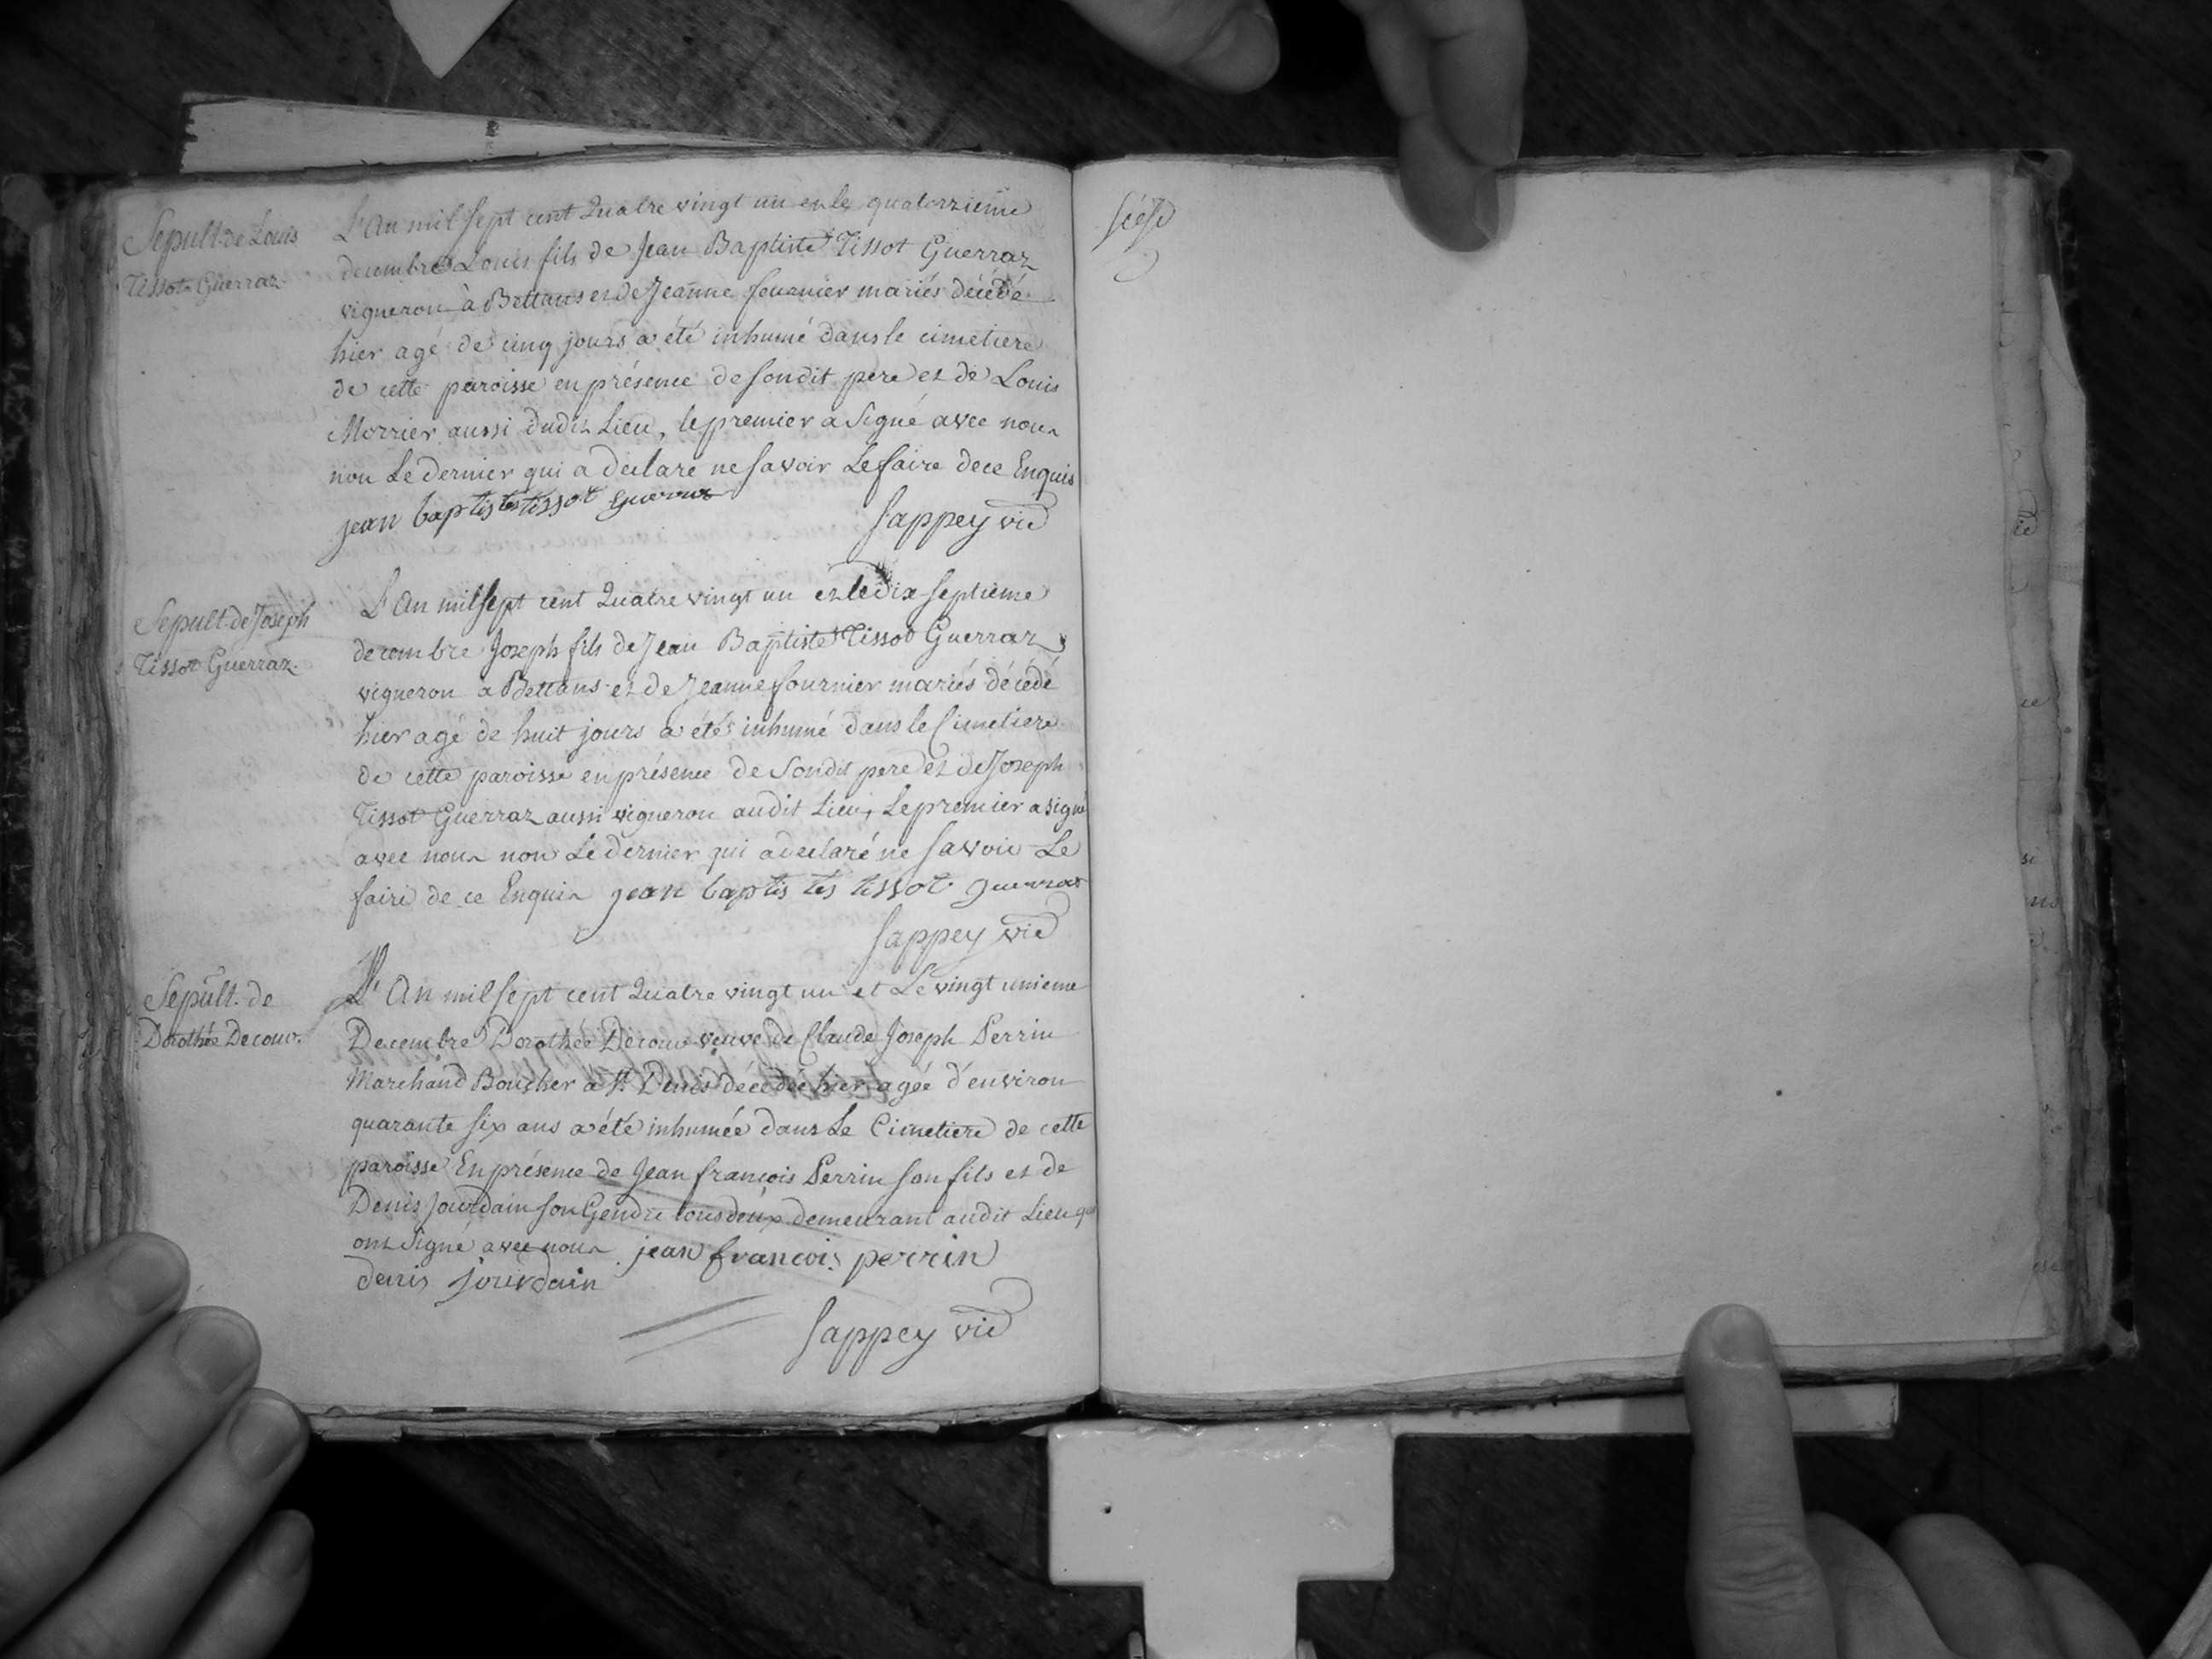 Sepult. de Louis
Tissot Guerraz
L'An mil sept cent Quatre vingt un et le quatorzieme
decembre Louis fils de Jean Baptiste Tissot Guerraz
vigneron à Bettans et de Jeanne fournier mariés décédé
hier agé de cinq jours a été inhumé dans le cimetiere
de cette paroisse en présence de son dit pere et de Louis
Morrier aussi dudit Lieu, le premier a signé avec nous
non Le dernier qui a declaré ne savoir Le faire de ce Enquis
jean baptis tes tissot guerraz
Sappey vic
Sepult. de Joseph
Tissot Guerraz.
L'An mil sept cent Quatre vingt un et le dix septieme
decembre Joseph fils de Jean Baptiste Tissot Guerraz
vigneron a Bettans et de Jeanne fournier mariés décédé
hier agé de huit jours a été inhumé dans le Cimetiere
de cette paroisse en présence de Son dit pere et de Joseph
Tissot Guerraz aussi vigneron audit Lieu, Le premier a signé
avec nous non Le dernier qui a declaré ne savoir Le
faire de ce Enquis jean baptis tes tissot guerraz
Sappey vic
Sepult. de
Dorothée Decouv.
L'An mil sept cent Quatre vingt un et Le vingt unieme
Decembre Dorothée Decouv veuve de Claude Joseph Perrin
Marchand Boucher à St. Denis décédée hier agée d'environ
quarante six ans a été inhumée dans Le Cimetiere de cette
paroisse En présence de Jean françois Perrin son fils et de
Denis Jourdain son Gendre tous deux demeurant audit Lieu qui
ont signé avec nous jean francois perrin
denis jourdain
Sappey vic